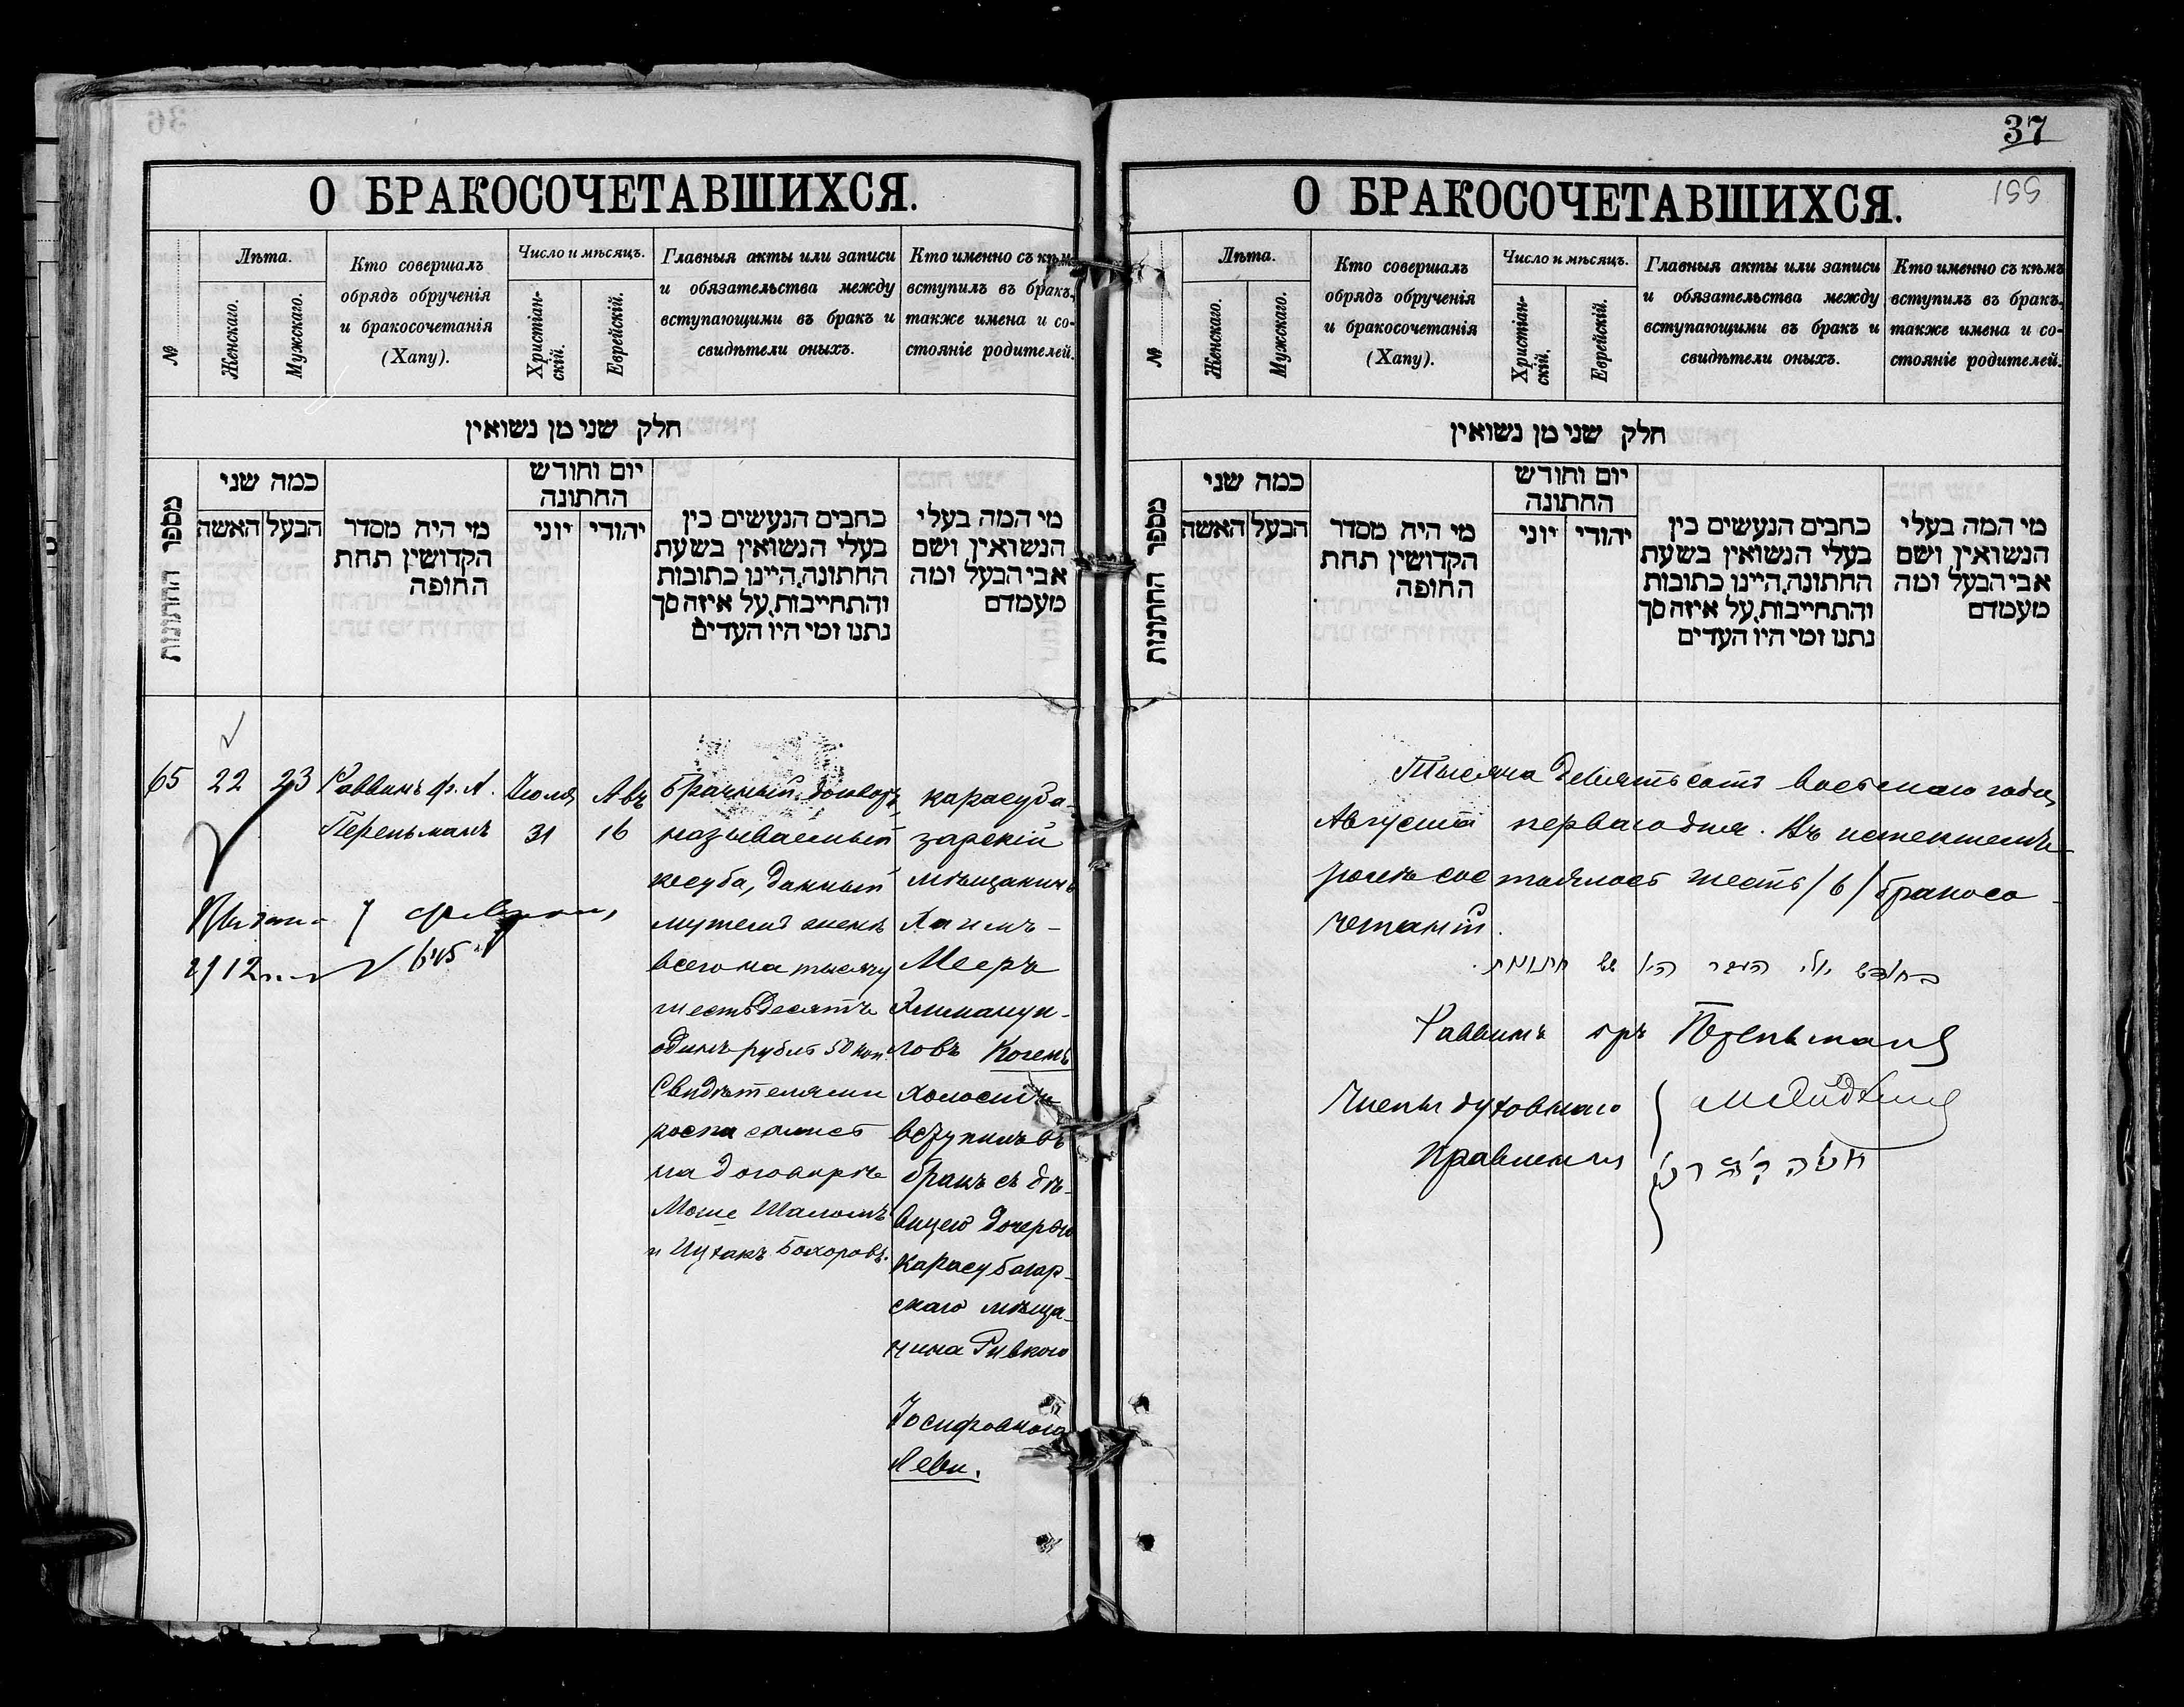 36
О БРАКОСОЧЕТАВШИХСЯ.
№
Лѣта.
Женскаго.
Мужскаго.
Кто совершалъ
обрядъ обрученія
и бракосочетанія
(Хапу).
Число и мѣсяцъ.
Христіан-
скій.
Еврейскій.
Главныя акты или записи
и обязательства между
вступающими въ бракъ и
свидѣтели оныхъ.
Кто именно съ кѣмъ
вступилъ въ бракъ,
также имена и со-
стояніе родителей.
חלק שני מן נשואין
מספר החתונות
כמה שני
האשה
הבעל
מי היה מסדר
הקדושין תחת
החופה
יום וחודש
החתונה
יוני
יהודי
כתבים הנעשים בין
בעלי הנשואין בשעת
החתונה, היינו כתובות
והתחייבות, על איזה סך
נתנו ומי היו העדים
מי המה בעלי
הנשואין ושם
אבי הבעל ומה
מעמדם
65
22
23
Раввинъ Ф. А.
Перельманъ
Іюля
31
Авъ
16
Брачный договоръ,
называемый
кесуба, данный
мужемъ женѣ
всего на тысячу
шестьдесятъ
одинъ рубль 50 коп.
Свидѣтелями
росписались
на договорѣ
Моше Шаломъ
и Ицхакъ Бохоровъ.
карасуба-
зарскій
мѣщанинъ
Хаимъ-
Мееръ
ловъ Когенъ
холостъ
вступилъ въ
бракъ съ дѣ-
вицею дочерью
карасубазар-
скаго мѣща-
нина Ривкою
Іосифовною
Леви.
1912
37
О БРАКОСОЧЕТАВШИХСЯ.
155
№
Лѣта.
Женскаго.
Мужскаго.
Кто совершалъ
обрядъ обрученія
и бракосочетанія
(Хапу).
Число и мѣсяцъ.
Христіан-
скій.
Еврейскій.
Главныя акты или записи
и обязательства между
вступающими въ бракъ и
свидѣтели оныхъ.
Кто именно съ кѣмъ
вступилъ въ бракъ,
также имена и со-
стояніе родителей.
חלק שני מן נשואין
מספר החתונות
כמה שני
האשה
הבעל
מי היה מסדר
הקדושין תחת
החופה
יום וחודש
החתונה
יוני
יהודי
כתבים הנעשים בין
בעלי הנשואין בשעת
החתונה, היינו כתובות
והתחייבות, על איזה סך
נתנו ומי היו העדים
מי המה בעלי
הנשואין ושם
אבי הבעל ומה
מעמדם
Тысяча девятьсотъ восьмаго года,
Августа перваго дня. Въ истекшемъ
Іюлѣ состоялось шесть /6/ бракосо-
четаній.
בחודש יולי העבר היו שש חתונות.
Раввинъ Перельманъ
Члены духовнаго
Правленія